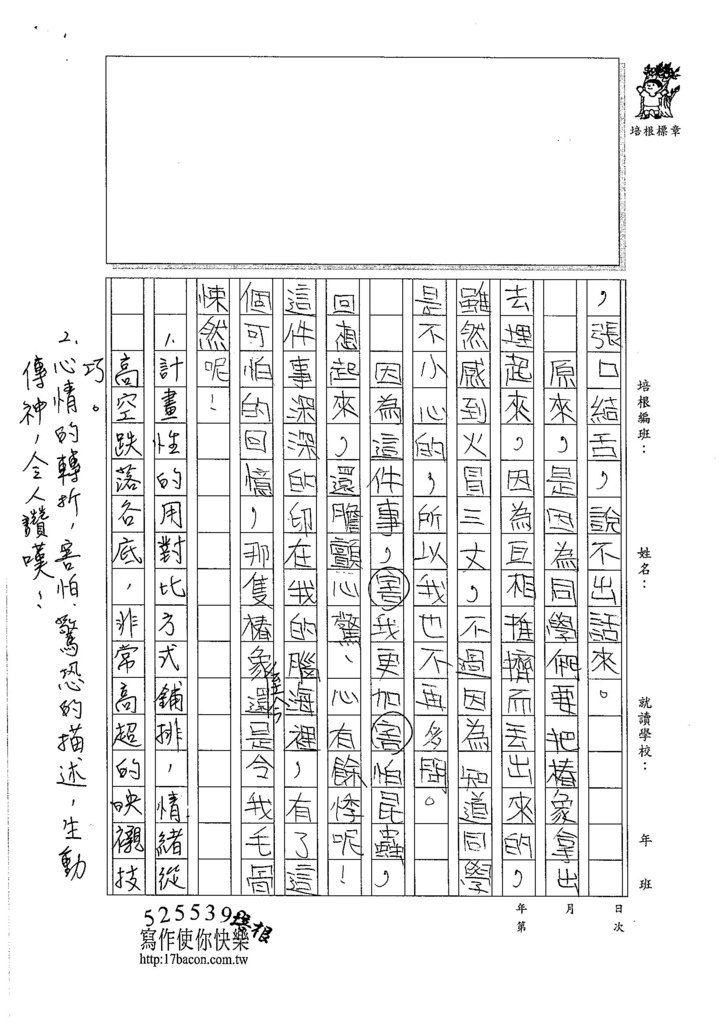 培根標章
培根編班：
姓名：
就讀學校：
年
班
日
次
月
年
第
，張口結舌，說不出話來。
原來，是因為同學們要把椿象拿出
去埋起來，因為互相推擠而丟出來的，
雖然感到火冒三丈，不過因為知道同學
是不小心的，所以我也不再多問。
因為這件事，害我更加害怕昆蟲，
回想起來，還膽顫心驚、心有餘悸呢！
這件事深深的印在我的腦海裡，有了這
個可怕的回憶，那隻椿象至今還是令我毛骨
悚然呢！
1.計畫性的用對比方式鋪排，情緒從
高空跌落谷底，非常高超的映襯技
巧。
2.心情的轉折，害怕、驚恐的描述，生動
傳神，令人讚嘆！
525539培根
寫作使你快樂
http:17bacon.com.tw